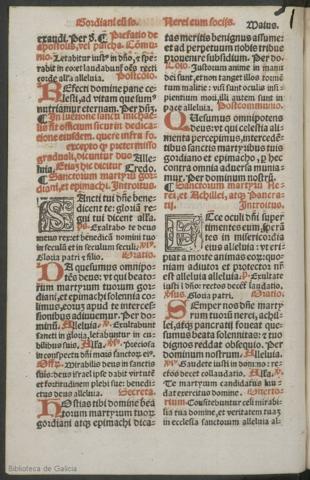 Gordiani cū so. Nerei cum socijs. Maius.
exaudi. Per d. ¶ Prefatio de
apostolis, vel pascha. Cōmu-
nio.
Letabitur iust⁹ in dño, ⁊ spe-
rabit in eo: et laudabunt oēs recti
corde all'a alleluia. Postcoīo.
REfecti domine pane ce-
lesti, ad vitam quesum⁹
nutriamur eternam. Per dñz.
¶ In iuentione sancti michae-
lis fit officium sicut in dedica-
tione eiusdem, quere infra fo.
excepto qp post misso
graduali, dicuntur duo Alle-
luia. Credo.
¶ Sanctorum martyrū gor-
diani, et epimachi. Introitus.
SAncti tui dñe bene-
dicent te: gloriā re-
gni tui dicent all'a.
ps. Exaltabo te deus
meus rex: et benedicā nomini tuo
in seculū et in seculum seculi.
Gloria patri ⁊ filio. Oratio.
DA quesumus omnipo-
tēs deus: vt qui beato-
rum martyrum tuorum gor-
diani, et epimachi solennia co-
limus, eorū apud te interces-
sionibus adiuuemur. Per do-
minū. Alleluia. Exultabunt
sancti in gloria, letabuntur in cu-
bilibus suis. Preciosa
in conspectu dñi mors sanctorū ei⁹.
Mirabilis deus in sanctis
suis: deus israel ipse dabit virtutē
et fortitudinem plebi sue: benedi-
ctus deus alleluia. Secreta.
HOstias tibi domine bea-
torum martyrum tuorū
gordiani atqȝ epimachi dica-
tas meritis benignus assume:
et ad perpetuum nobis tribue
prouenire subsidium. Per do.
Justorum anime in manu
dei sunt, et non tanget illos tormē-
tum malitie: visi sunt oculis insi-
pientium mori, illi autem sunt in
pace alleluia. Postcommunio.
QUesumus omnipotens
deus: vt qui celestia ali-
menta percepimus, interceden-
tibus sanctis martyribus tuis
gordiano et epimacho, p hec
contra omnia aduersa munia-
mur. Per dominum nostrum.
¶ Sanctorum martyrū Ne-
rei, et Achillei, atqȝ Pancra-
tij. Introitus.
ECce oculi dñi super
timentes eum, sperā-
tes in misericordia
eius alleluia: vt eri-
piat a morte animas eorū: quo-
niam adiutor et protector nr̄
est alleluia alleluia. Exultate
iusti ī dño: rectos decet laudatio.
Gloria patri. Oratio.
SEmper nos dñe marty-
rum tuorū nerei, achil-
lei, atqȝ pancratij foueat que-
sumus beata solennitas: et tuo
dignos reddat obsequio. Per
dominum nostrum. Alleluia.
Gaudete iusti in domino: re-
ctos decet collaudatio.
Te martyrum candidatus lau-
dat exercitus domine. Offerto-
rium. Confitebuntur celi mirabi-
lia tua domine, et veritatem tuaz
in ecclesia sanctorum alleluia al-
Biblioteca de Galicia